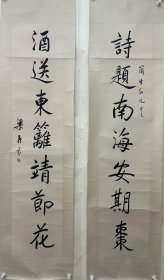 詩題南海安期棗
酒送東籬靖節花